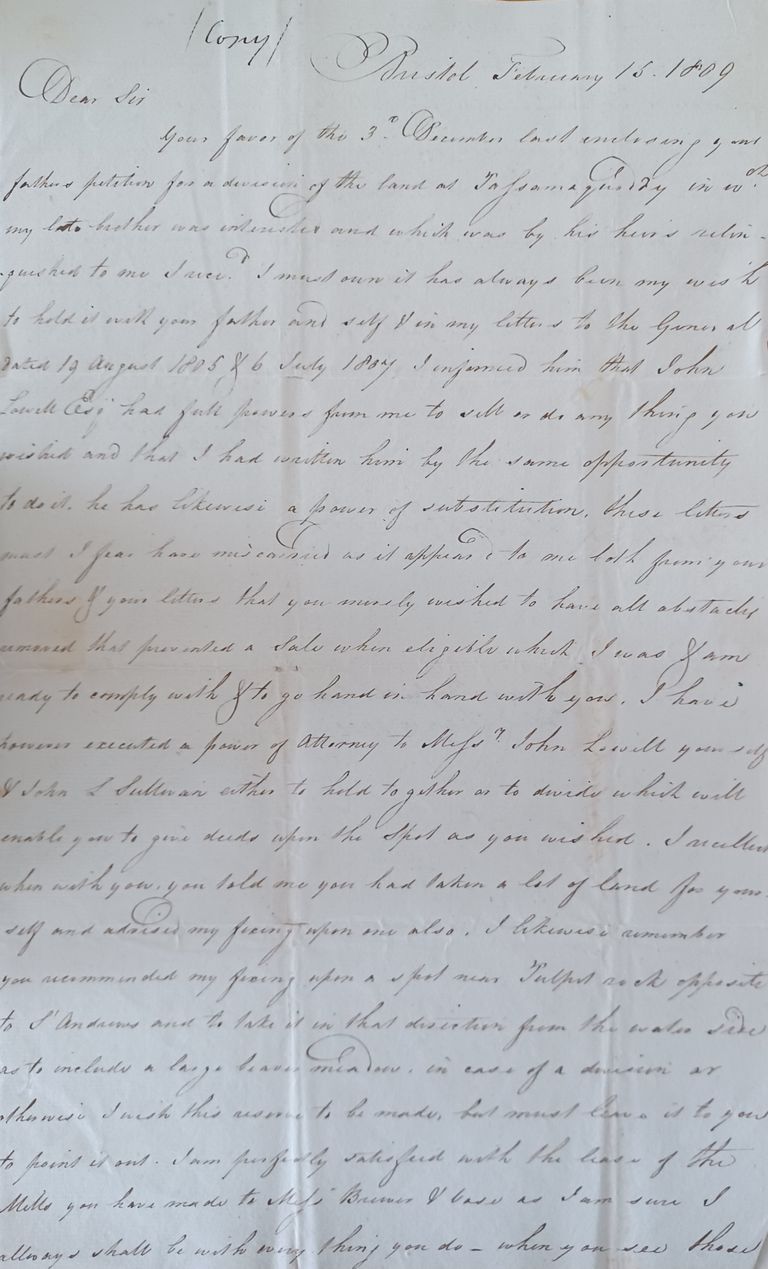 /Copy/
Bristol February 15. 1809
Dear Sir
Your favor of the 3d. December last enclosing your
fathers petition for a division of the land at Passamaquoddy in wch.
my late brother was interested and which was by his heirs relin-
-quished to me I recd. I must own it has always been my wish
to hold it with your father and self & in my letters to the General
dated 19 August 1805 & 6 July 1807 I informed him that John
Lowell Esqr had full powers from me to sell or do any thing you
wished and that I had written him by the same opportunity
to do it. he has likewise a power of substitution. these letters
must I fear have miscarried as it appeared to me both from your
fathers & your letters that you merely wished to have all obstacles
removed that prevented a Sale when eligible which I was & am
ready to comply with & to go hand in hand with you. I have
however executed a power of Attorney to Messrs. John Lowell yourself
& John L Sullivan either to hold together or to divide which will
enable you to give deeds upon the Spot as you wished. I recollect
when with you, you told me you had taken a lot of land for your-
self and advised my fixing upon one also. I likewise remember
you recommended my fixing upon a spot near Pulpit rock opposite
to St Andrews and to take it in that direction from the water side
as to include a large beaver meadow. in case of a division or
otherwise I wish this reserve to be made, but must leave it to you
to point it out. I am perfectly satisfied with the lease of the
Mills you have made to Messrs Brewer & as I am sure I
allways shall be with every thing you do - when you see those